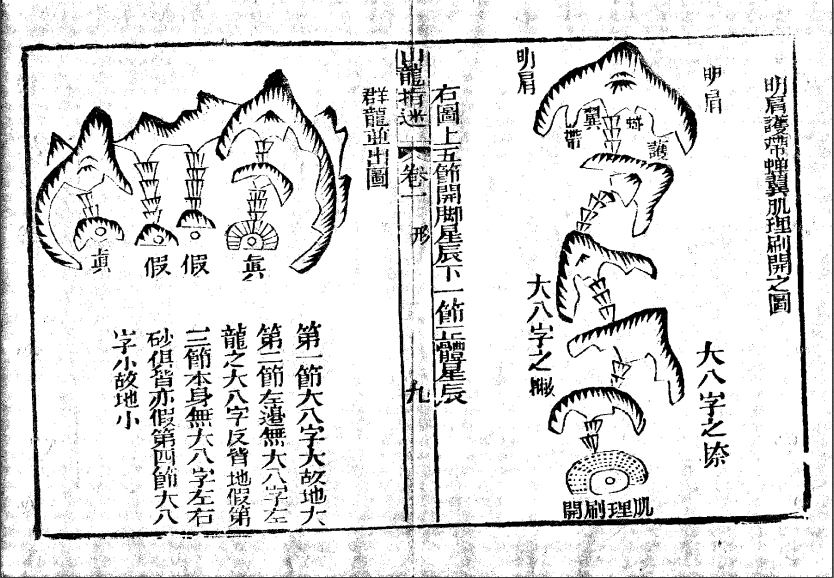 明肩護帶蟬翼肌理刷開之圖
明肩
明肩
護
蟬
翼
帶
大八字之
大八字之
肌理刷開
右圖上五節開脚星辰下一節正體星辰
山龍指迷 卷一 形 九
群龍並出圖
眞
假
假
眞
第一節大八字大故地大
第二節左邊無大八字左
龍之大八字反背地假第
三節本身無大八字左右
砂俱背亦假第四節大八
字小故地小